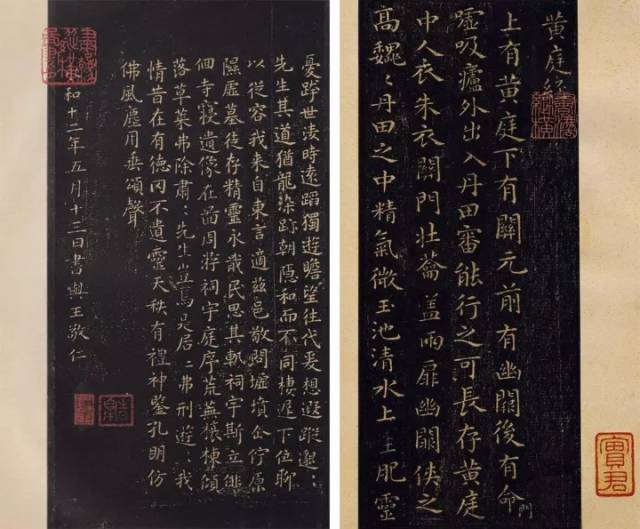 黄庭經
上有黄庭下有關元前有幽闕後有命門
嘘吸廬外出入丹田審能行之可長存黄庭
中人衣朱衣關門壯蘥盖兩扉幽闕俠之
高巍〻丹田之中精氣微玉池清水上生肥靈
憂跨世淩時遠蹈獨遊瞻望往代爰想遐蹤邈〻
先生其道猶龍染跡朝隱和而不同棲遲下位聊
以從容我来自東言適兹邑敬問墟墳企佇原
隰墟墓徒存精靈永戢民思其軌祠宇斯立俳
佪寺寢遺像在啚周游祠宇庭序荒蕪榱棟傾
落草萊弗除肅〻先生豈焉是居〻弗刑遊〻我
情昔在有德罔不遺靈天秩有禮神鑒孔明仿
佛風塵用垂頌聲
和十二年五月十三日書與王敬仁